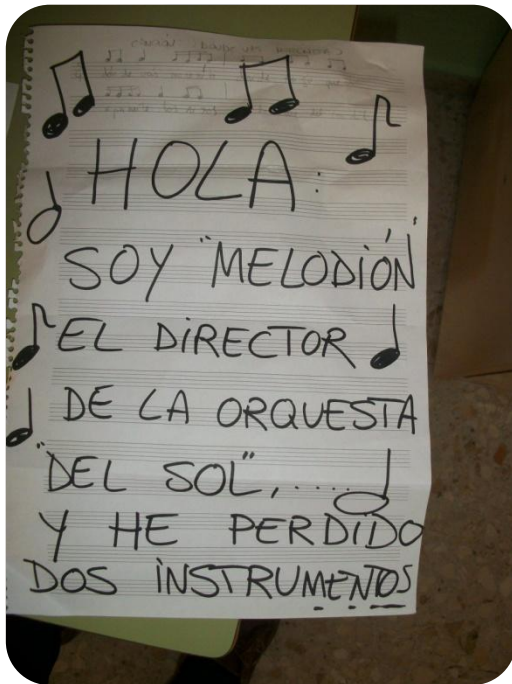 HOLA:
SOY "MELODIÓN"
EL DIRECTOR
DE LA ORQUESTA
"DEL SOL",.....
Y HE PERDIDO
DOS INSTRUMENTOS